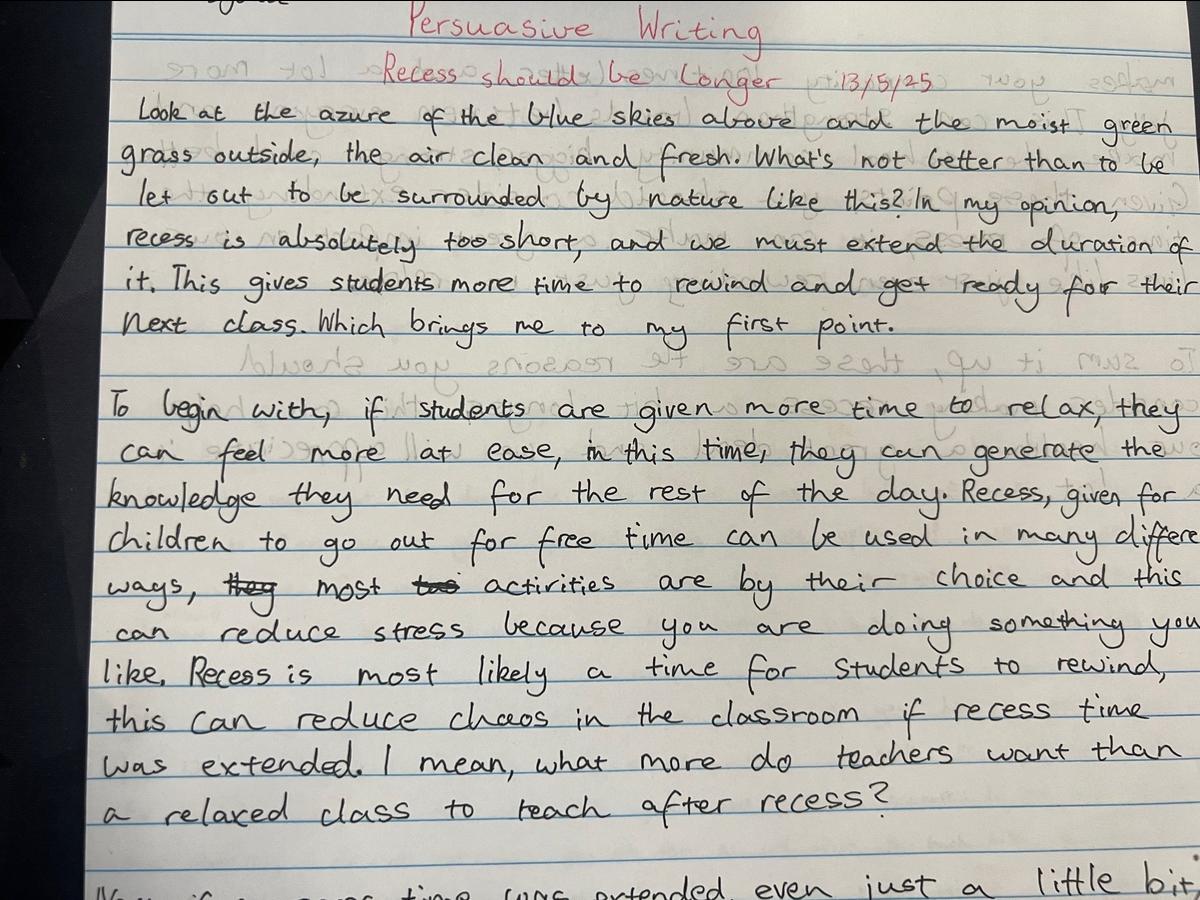 Persuasive Writing
Recess should be Longer 13/5/25
Look at the azure of the blue skies above and the moist green
grass outside, the air clean and fresh. What's not better than to be
let out to be surrounded by nature like this? In my opinion,
recess is absolutely too short, and we must extend the duration of
it. This gives students more time to rewind and get ready for their
next class. Which brings me to my first point.
To begin with, if students are given more time to relax, they
can feel more at ease, in this time, they can generate the
knowledge they need for the rest of the day. Recess, given for
children to go out for free time can be used in many differe
ways, they most too activities are by their choice and this
can reduce stress because you are doing something you
like. Recess is most likely a time for students to rewind,
this can reduce chaos in the classroom if recess time
was extended. I mean, what more do teachers want than
a relaxed class to teach after recess?
time was extended even just a little bit,